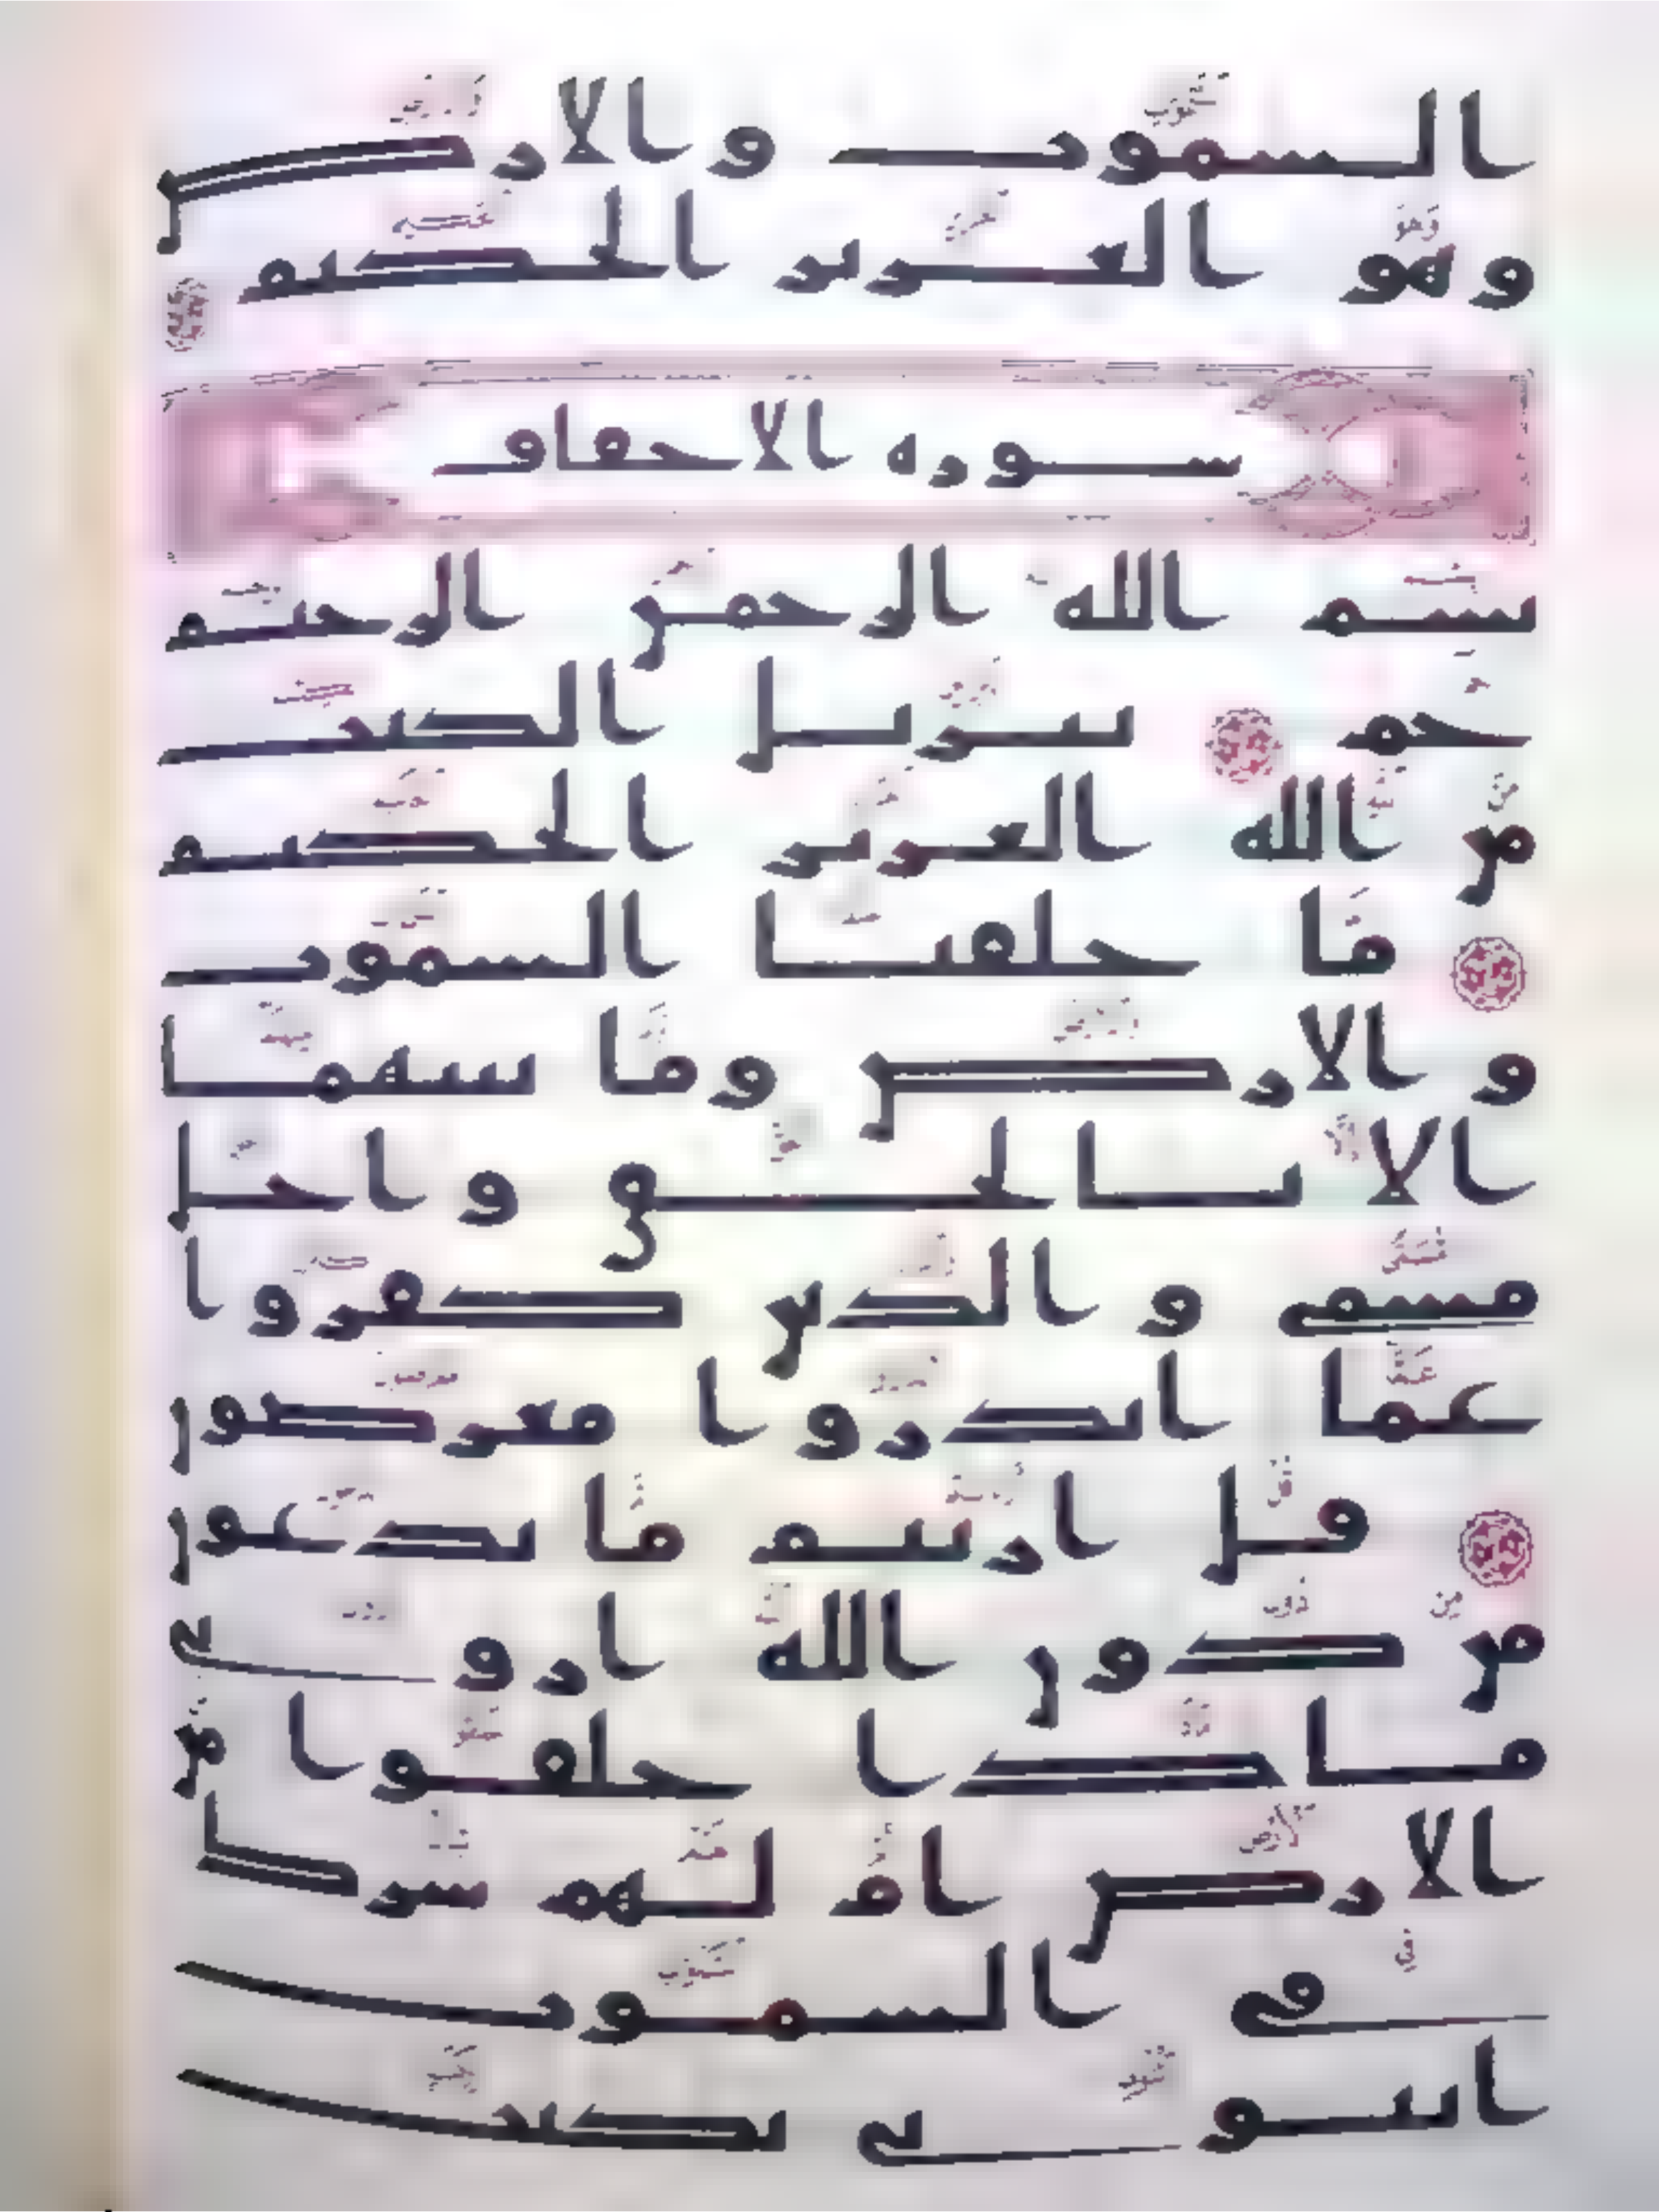 السموت والارض
وهو العزيز الحكيم
سورة الاحقاف
بسم الله الرحمن الرحيم
حم تنزيل الكتب
من الله العزيز الحكيم
ما خلقنا السموت
والارض وما بينهما
الا بالحق واجل
مسمى والذين كفروا
عما انذروا معرضون
قل اريتم ما تدعون
من دون الله اروني
ماذا خلقوا من
الارض ام لهم شرك
في السموت
ائتوني بكتب